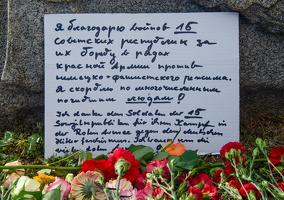 Я благодарю воинов 15
советских республик за
их борьбу в рядах
красной Армии против
немецко-фашистского режима.
Я скорблю по многочисленным
погибшим людям!
Ich danke den Soldaten der 15
Sowjetrepubliken für ihren Kampf in
der Roten Armee gegen den deutschen
Hitler faschismus. Ich trauere um die
vielen